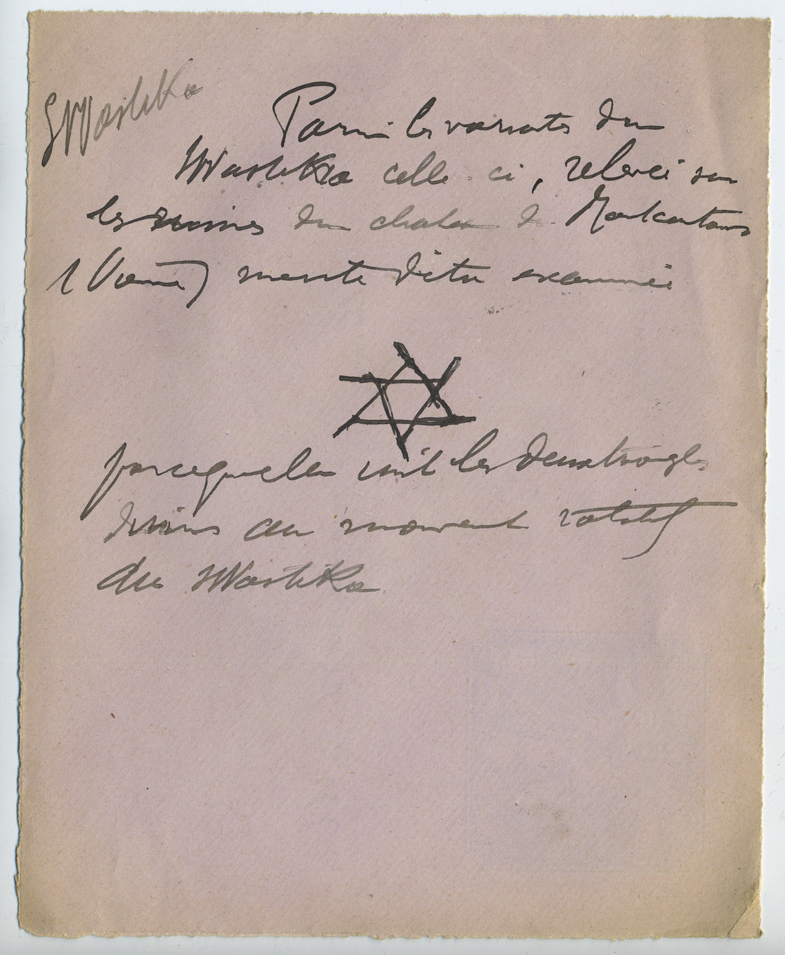 Swastika
Parmi les variants du
Swastika celle ci, relevé sur
les ruines du chateau de
(Vienne) merite d'etre examinée
parcequ'elle unit les deux triangles
divins au mouvement rotatif
du Swastika